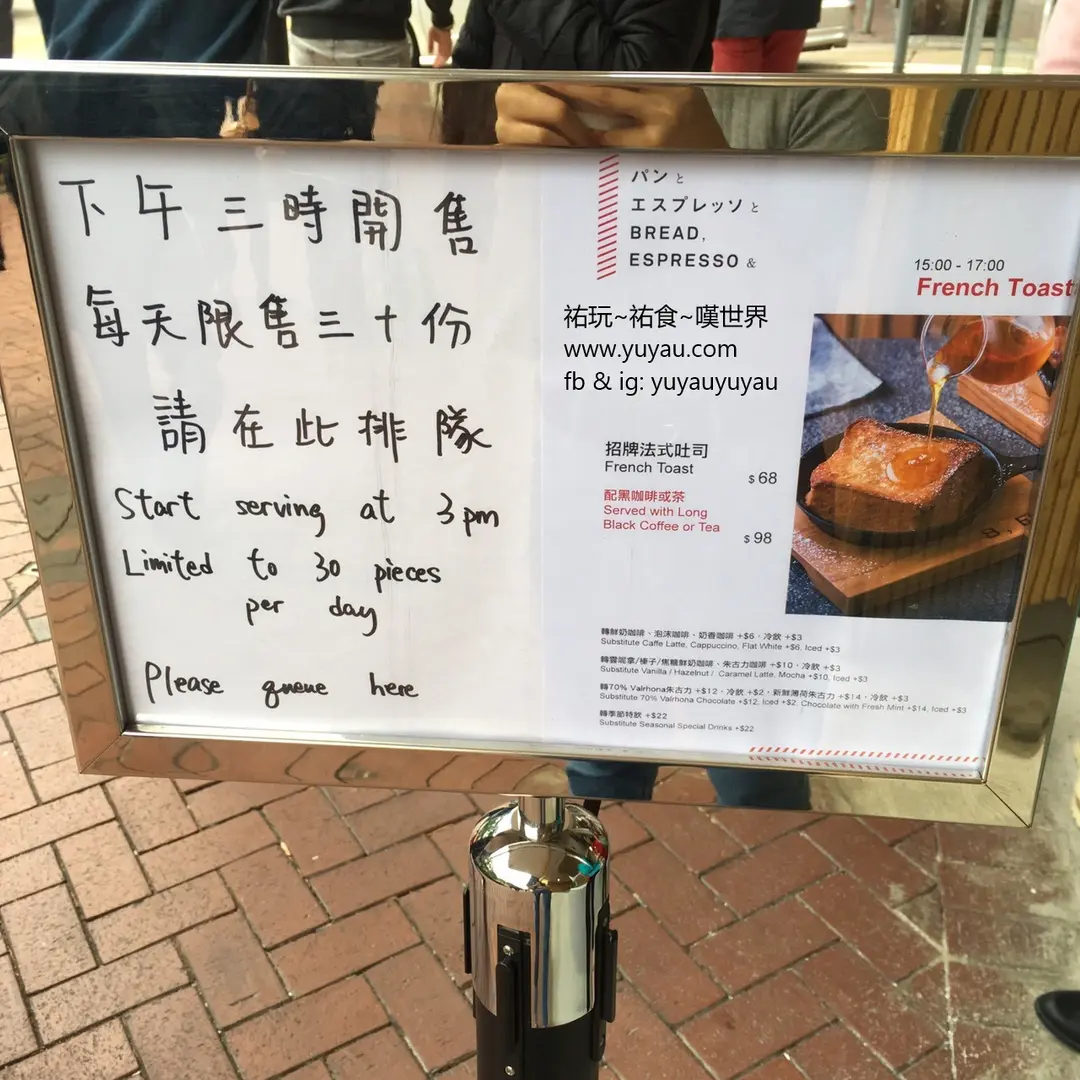 下午三時開售
每天限售三十份
請在此排隊
Start serving at 3pm
Limited to 30 pieces
per day
Please queue here
パンと
エスプレッソと
BREAD,
ESPRESSO &
祐玩~祐食~嘆世界
www.yuyau.com
fb & ig: yuyauyuyau
15:00 - 17:00
French Toast
招牌法式吐司
French Toast
$ 68
配黑咖啡或茶
Served with Long
Black Coffee or Tea
$ 98
轉鮮奶咖啡、泡沫咖啡、奶香咖啡 +$6，冷飲 +$3
Substitute Caffe Latte, Cappuccino, Flat White +$6, Iced +$3
轉雲呢拿/榛子/焦糖鮮奶咖啡、朱古力咖啡 +$10，冷飲 +$3
Substitute Vanilla / Hazelnut / Caramel Latte, Mocha +$10, Iced +$3
轉70% Valrhona朱古力 +$12，冷飲 +$2，新鮮薄荷朱古力 +$14，冷飲 +$3
Substitute 70% Valrhona Chocolate +$12, Iced +$2, Chocolate with Fresh Mint +$14, Iced +$3
轉季節特飲 +$22
Substitute Seasonal Special Drinks +$22